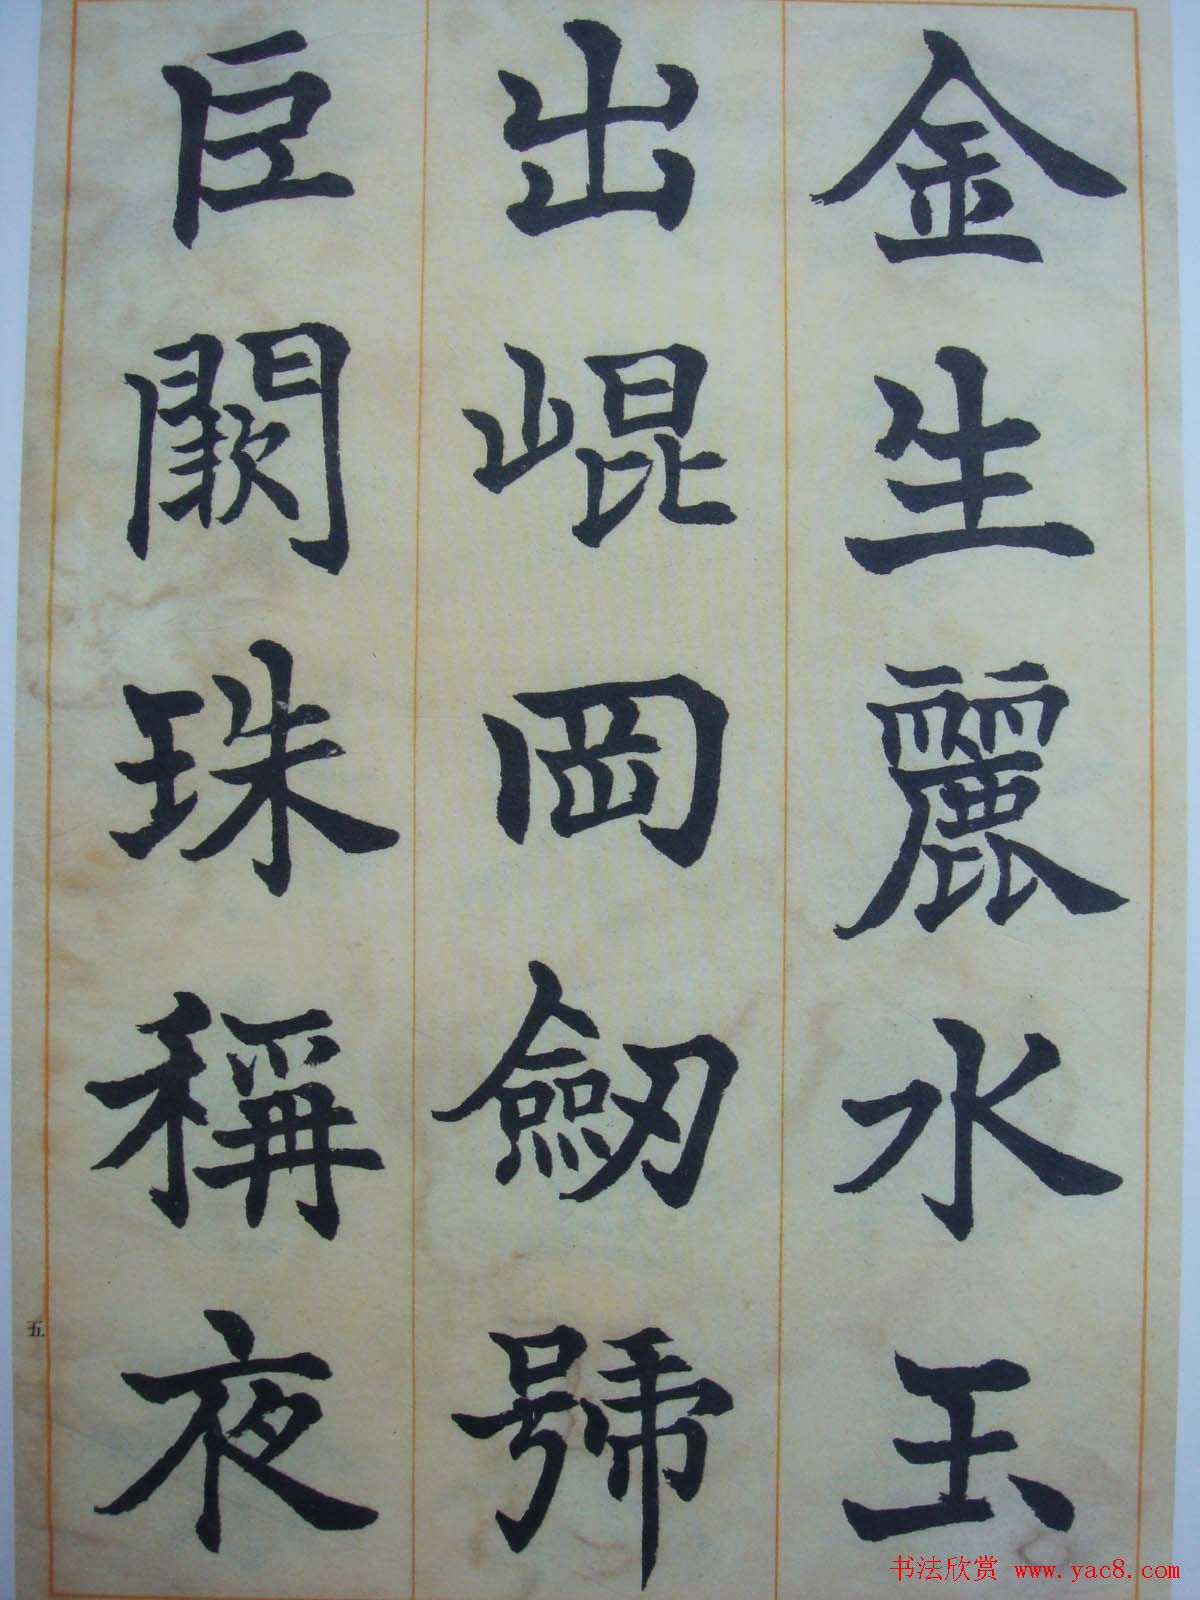 金生麗水玉
出崐岡劒號
巨闕珠稱夜
五
书法欣赏 www.yac8.com